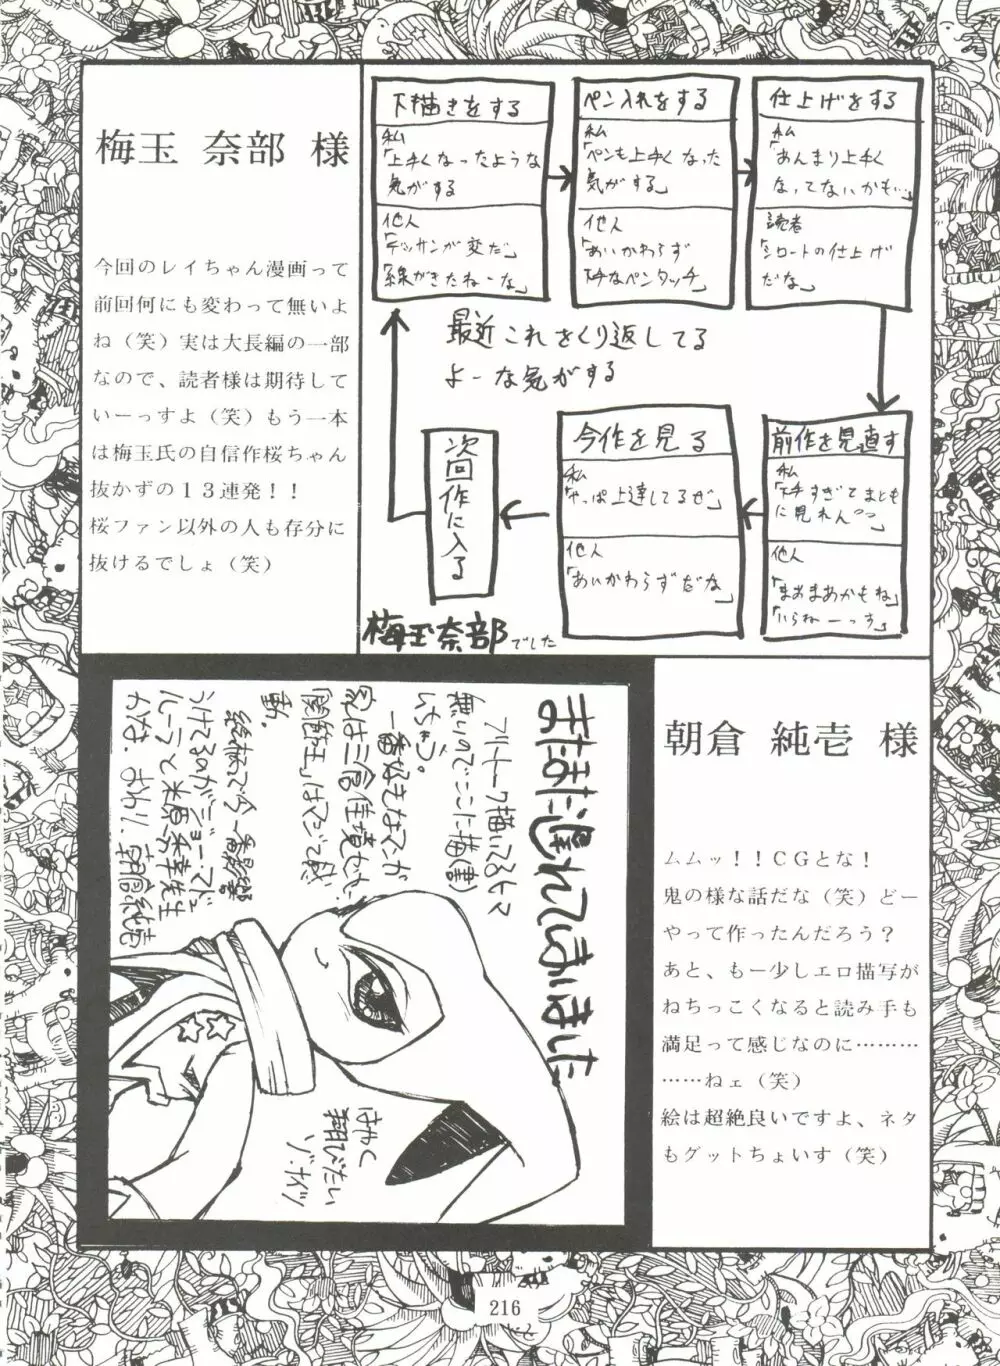 梅玉 奈部 様
今回のレイちゃん漫画って
前回何にも変わって無いよ
ね（笑）実は大長編の一部
なので、読者様は期待して
いーっすよ（笑）もう一本
は梅玉氏の自信作桜ちゃん
抜かずの１３連発！！
桜ファン以外の人も存分に
抜けるでしょ（笑）
下描きをする
私
「上手くなったような
気がする
他人
「デッサンが変だ」
「線がきたねーな」
ペン入れをする
私
「ペンも上手くなった
気がする」
他人
「あいかわらず
なペンタッチ」
仕上げをする
私
「あんまり上手く
なってないかも…」
読者
「シロートの仕上げ
だな」
前作を見直す
私
すぎてまとも
に見れん
他人
「まあまあかもね」
「いらねーっす」
今作を見る
私
「やっぱ上達してるぜ」
他人
「あいかわらずだな」
次回作に入る
最近これをくり返してる
よーな気がする
梅玉奈部でした
またまた遅れてしまいました
フリートーク描いてるヒマ
無いのでここに描(書)
いちゃう。
一番好きなマンガ
「闘将王」はマジで感
動。
ルーラと米原秀幸先生
かな。おわり。朝倉純壱
はやく
翔びたい
ゾ・ナイツ
朝倉 純壱 様
ムムッ！！ＣＧとな！
鬼の様な話だな（笑）どー
やって作ったんだろう？
あと、もー少しエロ描写が
ねちっこくなると読み手も
満足って感じなのに………
……ねェ（笑）
絵は超絶良いですよ、ネタ
もグットちょいす（笑）
216